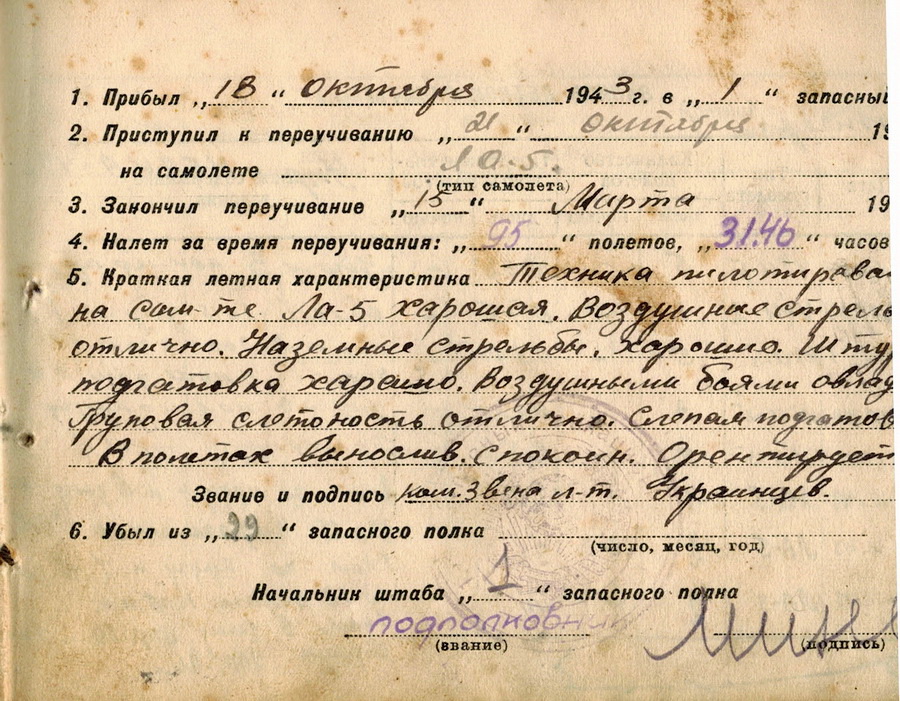 1. Прибыл „18“ октября 1943 г. в „1“ запасный
2. Приступил к переучиванию „21“ октября 19
на самолете Ла-5.
(тип самолета)
3. Закончил переучивание „15“ Марта 19
4. Налет за время переучивания: „95“ полетов, „31.46“ часов
5. Краткая летная характеристика Техника пилотирова
на сам-те Ла-5 харошая. Воздушные стрель
отлично. Наземные стрельбы. харошо. Штур
подгатовка харашо. Воздушными боями овлад
Груповая слетоность отлично. Слепая подгатов
В полетах вынослив. спокоин. Орентирует
Звание и подпись ком. Звена л-т. Украинцев.
6. Убыл из „99“ запасного полка
(число, месяц, год)
Начальник штаба „1“ запасного полка
подполковник
(звание) (подпись)